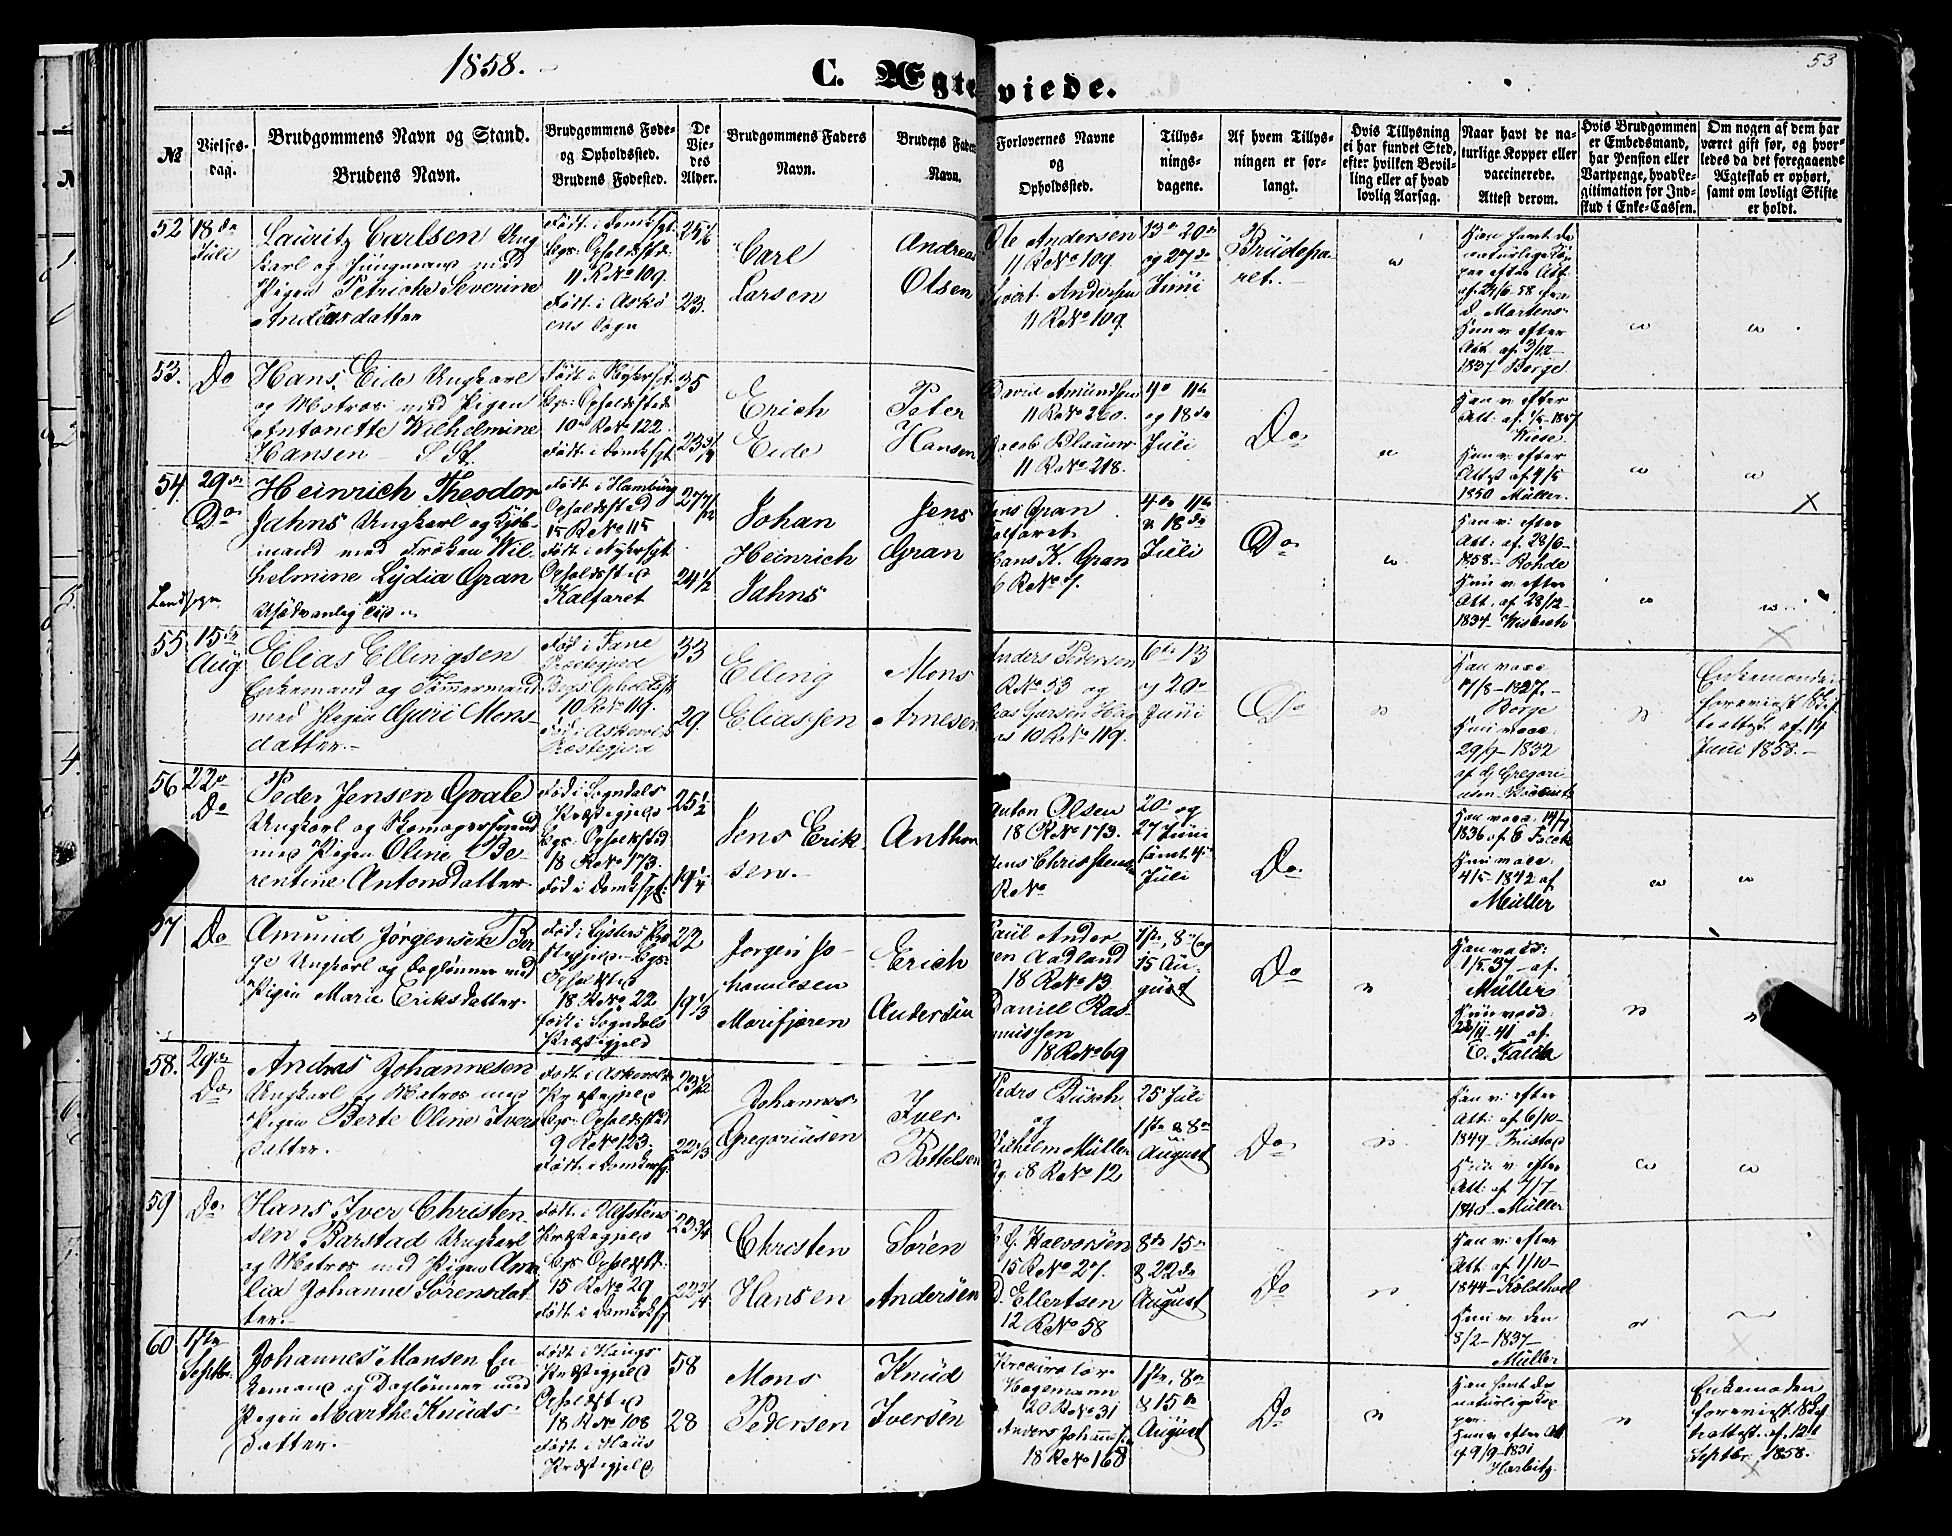 1858.
53
C. Ægteviede.
№
Vielses-
dag.
Brudgommens Navn og Stand.
Brudens Navn.
Brudgommens Føde-
og Opholdssted.
Brudens Fødested.
De
Vie-
des
Alder.
Brudgommens Faders
Navn.
Brudens Faders
Navn.
Forlovernes Navne
og
Opholdssted.
Tillys-
nings-
dagene.
Af hvem Tillys-
ningen er for-
langt.
Hvis Tillysning
ei har fundet Sted,
efter hvilken Bevil-
ling eller af hvad
lovlig Aarsag.
Naar havt de na-
turlige Kopper eller
vaccinerede.
Attest derom.
Hvis Brudgommen
er Embedsmand,
har Pension eller
Vartpenge, hvad Le-
gitimation for Ind-
skud i Enke-Cassen.
Om nogen af dem har
været gift før, og hvor-
ledes da det foregaaende
Ægteskab er ophørt,
samt om lovligt Skifte
er holdt.
52
18de
Juli
Lauritz Carlsen Ung-
karl og med
Pigen Petricke Severine
Andreasdatter
Født i Domksgt
Bgs: Opholdsted
11 R No 109.
Født i Askø
ens Sogn
23.
Carl
Larsen
Andreas
Olsen
Ole Andersen
11 R No 109.
Andersen
11 R No 109.
13de 20de
og 27de
Juni
Brudepa-
ret.
Han havt de
naturlige Kop-
per efter Att.
af 24/6 58 fra
D. Martens
Hun v. efter
Att. af 3/12
1837 Berge
53.
Do
Hans Eide Ungkarl
og Matros med Pigen
Antonette Wilhelmine
Hansen
Født i Nykrsgt
Bgs: Opholdsted
10 R No 122.
Født i Domksgt
35
23 3/4
Erich
Eide
Peter
Hansen
David Amundsen
11 R No 260.
Jacob Blaauw
11 R No 218.
4de 11te
og 18de
Juli
Do
Han v. efter
Att. af
Wiese.
Hun v. efter
Attest af 4/5
1850 Müller.
54.
29de
Do
Landsogn
Heinrich Theodor
Jahns Ungkarl og Kjøb-
mand med Frøken Wil-
helmine Lydia Gran
Usædvanlig Tid
Født i Hamburg
Opholdsted
15 R No 115
Født i Nykrsgt
Opholdsted
Kalfaret
27 7/12
24 1/2
Johan
Heinrich
Jahns
Jens
Gran
Jens Gran
Kalfaret
Hans K. Gran
6 R No 7.
4de 11te
& 18de
Juli
Do
Han v: efter
Att: af 28/6
1858 Rohde
Hun v. efter
Att. af 28/12
1834 Wisbech
55
15de
Aug
Elias Ellingsen
Enkemand og Tømmermand
med Pigen Guri Mons-
datter.
Fød i Fane
Præstegjeld
Bgs Opholdst.
10 R No 119.
Fød i Askevold
Præstegjeld
33
29.
Elling
Eliassen
Mons
Arnesen
Anders Pedersen
R No 53 og
10 R No 119.
6te 13
og 20de
Juni
Do
Han vacc.
17/8 1827.
Berge
Hun vacc.
29/9 1832
af G Gregori
uden Kocents
Enkemanden
foreviist Skif-
teattest af 14
Juni 1858.
56
22de
Do
Peder Jensen Qvale
Ungkarl og Skomagersvend
med Pigen Oline Be-
rentine Antonsdatter
Fød i Sogndals
Præstegjeld
Bgs. Opholdsted
18 R No 173.
Fød i Domksgt.
25 1/2
19 1/4
Jens Erik-
sen.
Anthon
Anton Olsen
18 R No 173.
Jens Christensen
R No
20de og
27 Juni
samt 4de
Juli
Do
Han vacc. 19/7
1836 af
Hun vacc.
4/5 1842 af
Müller
57
Do
Amund Jørgensen Ber-
ge Ungkarl og Dagleiner med
Pigen Marie Eriksdatter
Fød i Lysters Præ-
stegjeld Bgs:
Opholdsted
18 R No 22
født i Sogndals
Præstegjeld
22
19 1/3
Jørgen Jo-
hannesen
Marifjæren
Erich
Andersen
Paul Ander
sen Aadland
18 R No 13
Daniel Ras-
mussen
18 R No 69
1ste, 8de og
15 Au-
gust
Do
Han vacc:
1/5.37 af
Müller
Hun vacc:
22/11 41 af
C. Falch
58.
29de
Do
Andreas Johannesen
Ungkarl og Matros med
Pigen Berte Oline Ivers
datter.
Født i Askevolds
Præstegjeld
Bgs: Opholdsted
9 R No 123.
Født i Domksgt
23 1/2
22 1/3
Johannes
Gregoriusen
Iver
Rottelsen
Pedro Busch
og
Wilhelm Müller
Bg. i 8 R No 12
25 Juli
1ste & 8de
August
Do
Han v: efter
Att: af 6/10
1849 Fristad
Hun v: efter
Att: af 7/7
1840 Müller
59
Do
Hans Iver Christen-
sen Barstad Ungkarl
og Matros med Pigen Ama
lia Johanne Sørensdat-
ter.
Født i Ulfstens
Præstegjeld
Bgs Opholdst:
15 R No 29
Født i Domksgt
23 3/4
22 3/4
Christen
Hansen
Søren
Andersen
G. Halvorsen
15 R No 27.
D. Ellertsen
12 R No 58
8de 15de
& 22de
August
Do
Han v: efter
Att: af 1/10
1844 Koldhoel
Hun v. den
8/2 1837
Müller
60
1ste
Septbr.
Johannes Monsen En-
kemand og Dagleiner med
Pigen Marthe Knuds-
datter.
Født i Haugs
Præstegjeld
Opholdsted
18 R No 108
Født i Haus
Præstegjeld
58
28
Mons
Pedersen
Knud
Iversen
Procurator
Hagemann
20 R No 31
Anders Johannsen
18 R No 168
1ste, 8de
& 15de
August
Do
Han havt de
naturlige Kop-
per.
Hun v efter Att
af 9/9 1831
Harbitz
Enkemanden
foreviist Skif
teattest af 12te
Septbr 1858.